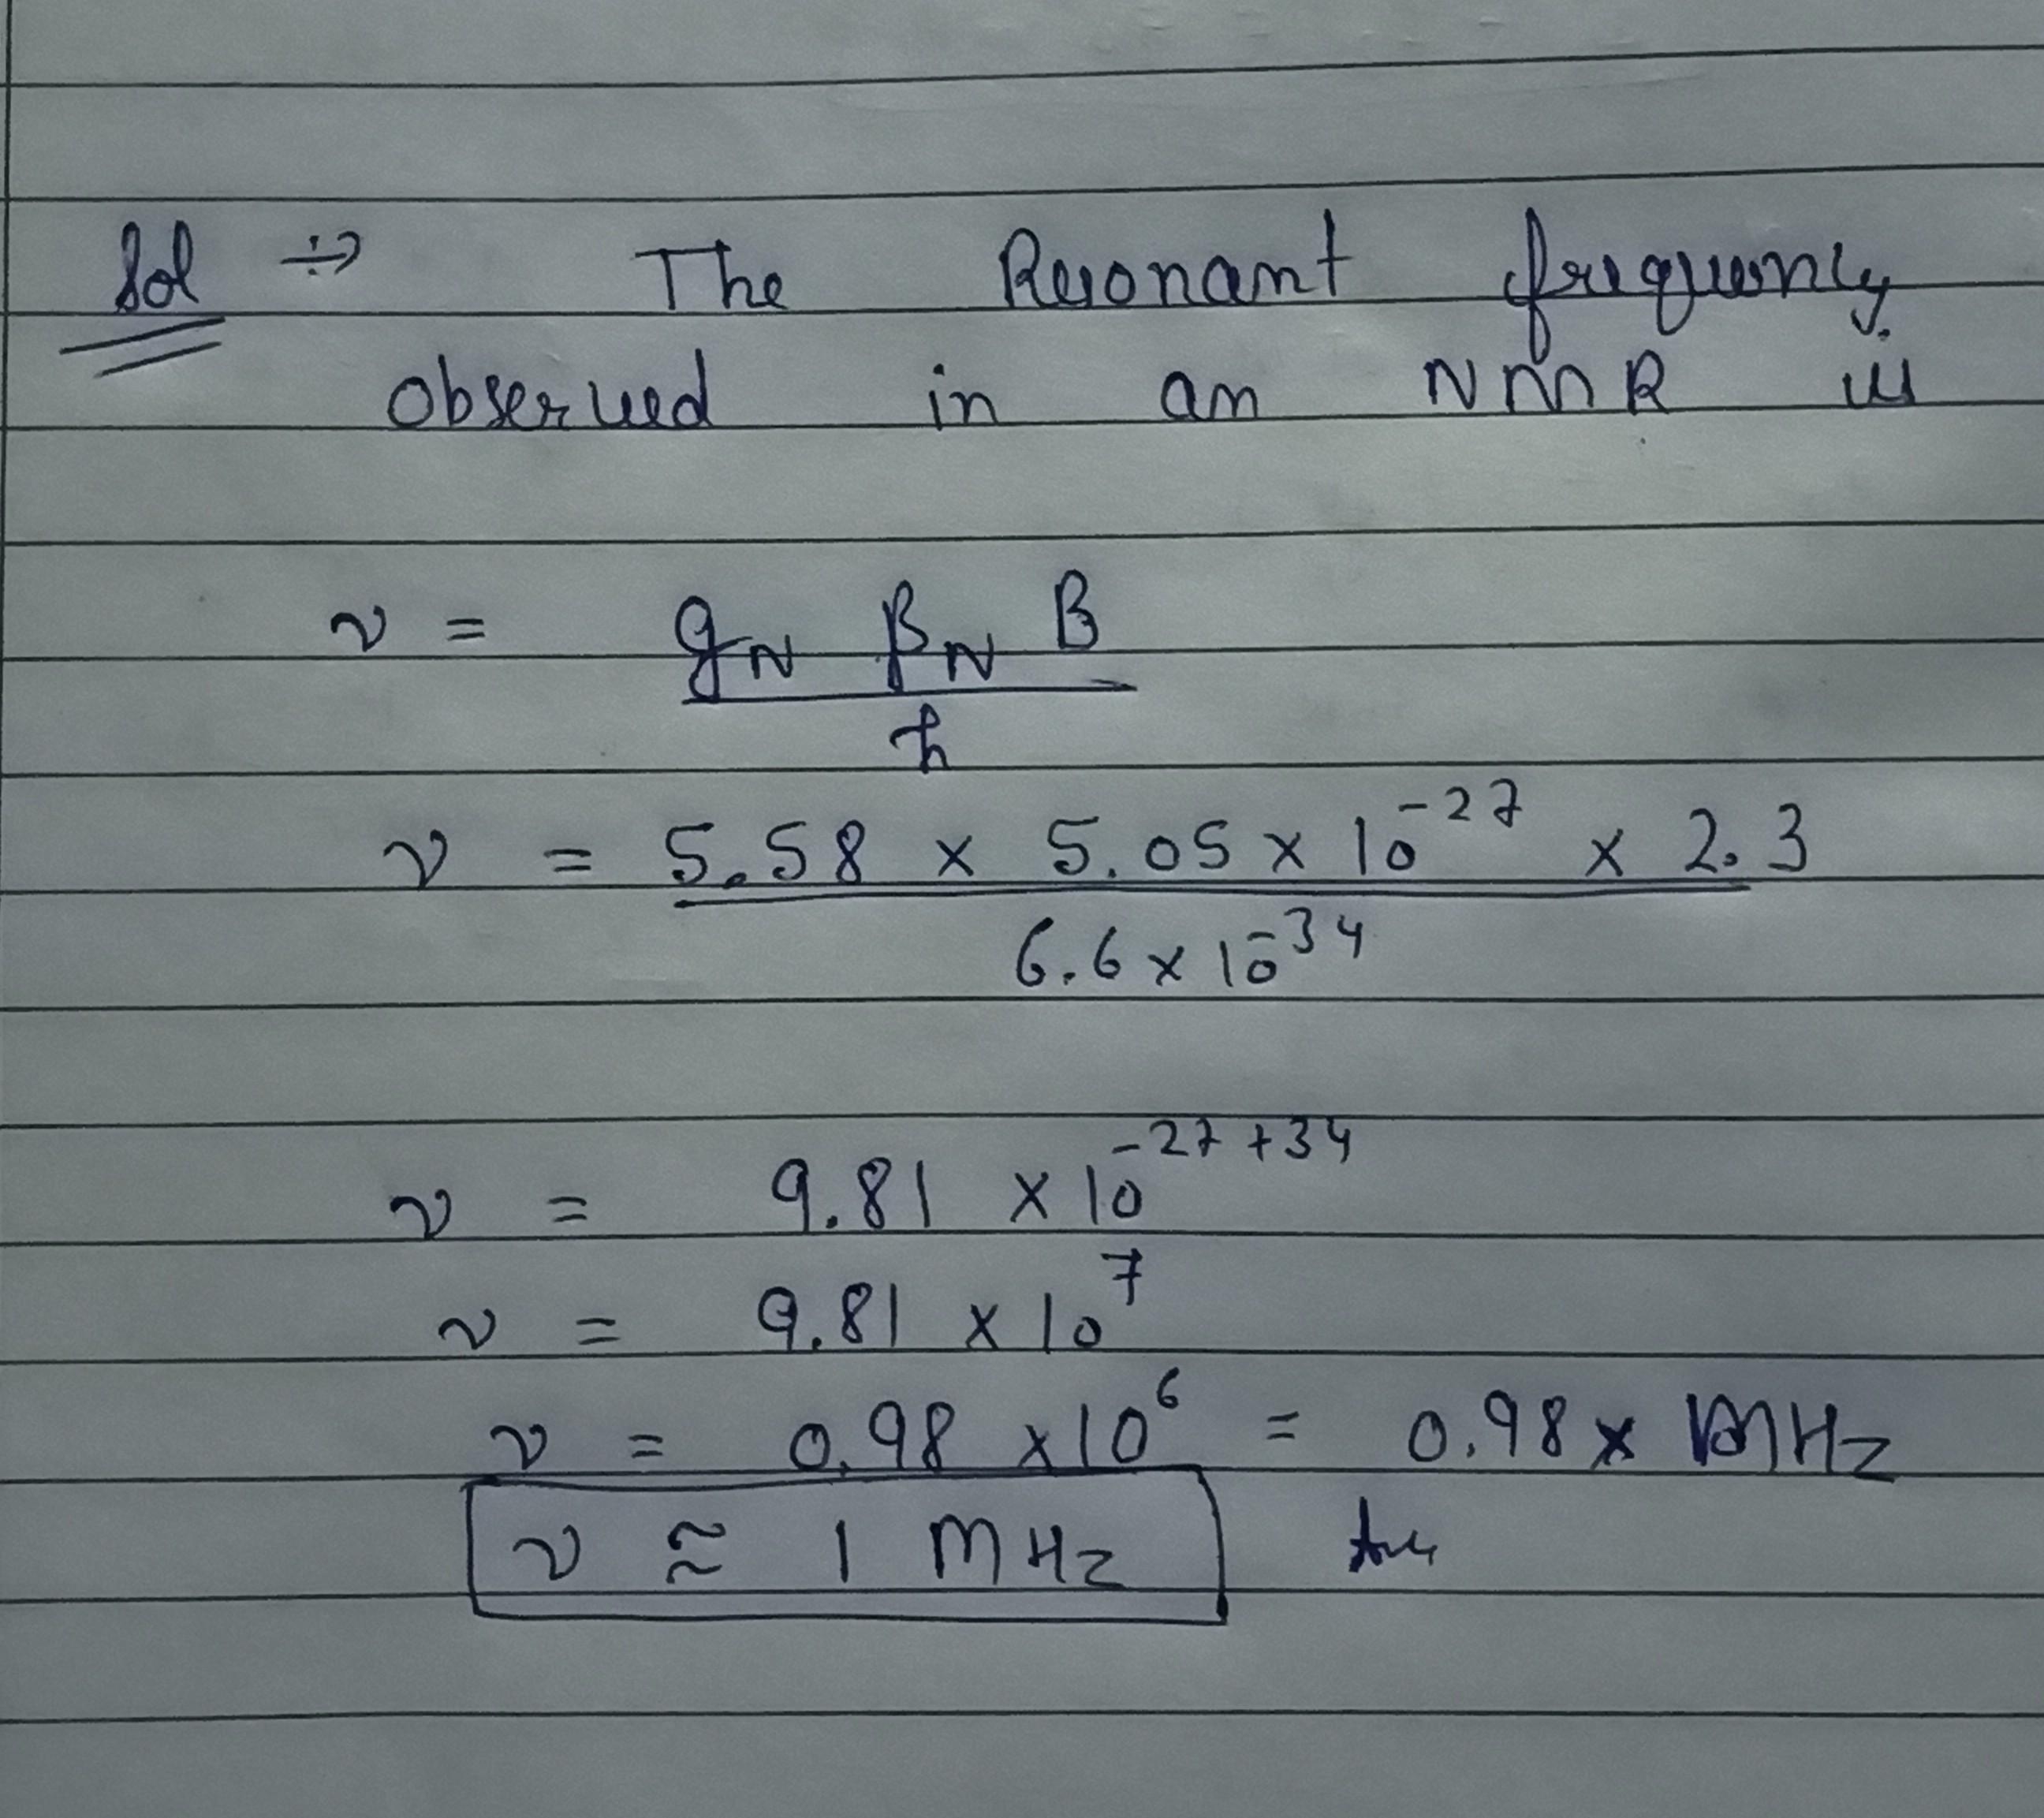 Sol ÷) The Resonant frequency
observed in an NMR is
ν = gN βN B / ħ
ν = 5.58 × 5.05 × 10^-27 × 2.3 / 6.6 × 10^-34
ν = 9.81 × 10^-27+34
ν = 9.81 × 10^7
ν = 0.98 × 10^6 = 0.98 × MHz
ν ≈ 1 MHz Ans